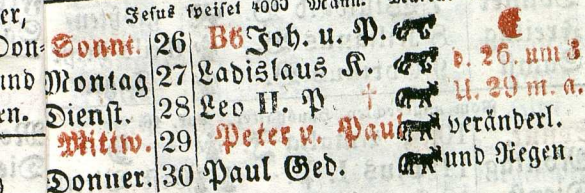 er,
Don-
und
en.
Jesus speiset 4000 Mann.
Sonnt. 26 B6 Joh. u. P.
Montag 27 Ladislaus K. d. 26. um 3
Dienst. 28 Leo II. P. † U. 29 m. a.
Mittw. 29 Peter u. Paul veränderl.
Donner. 30 Paul Ged. und Regen.